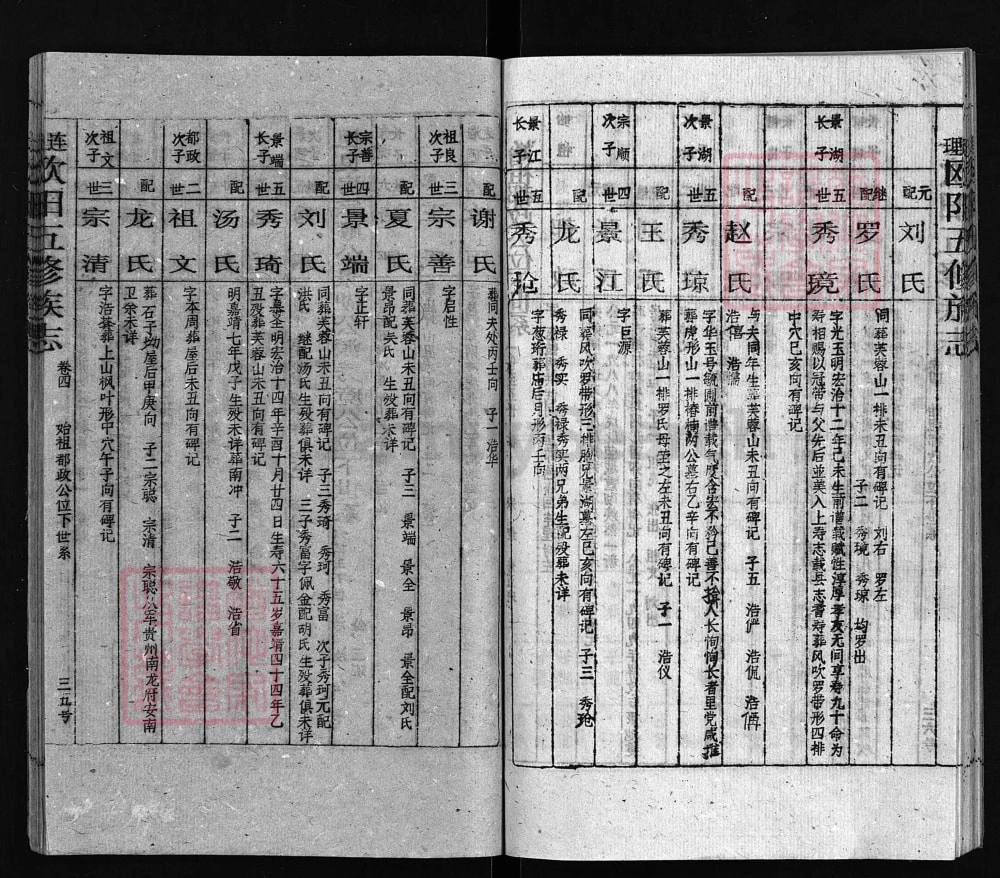 欧阳五修族志
元配
刘氏
继配
罗氏
同葬芙蓉山一排未丑向有碑记 刘右 罗左
子二 秀境 秀琼 均罗出
景湖长子
五世
秀境
字光玉明宏治十二年己未生前谱载赋性淳厚孝友无间享寿九十命为
寿相赐以冠带与父先后並美入上寿志载县志耆寿葬风吹罗带形四排
中穴巳亥向有碑记
配
赵氏
与夫同年生葬芙蓉山未丑向有碑记 子五 浩俨 浩侃 浩
浩僖 浩
景湖次子
五世
秀琼
字华玉号毓 前谱载气度含宏不矜己善不掩人长恂恂长者里党咸推
葬虎形山一排椿楠两公墓右乙辛向有碑记
配
王氏
葬芙蓉山一排罗氏母茔之左未丑向有碑记 子一 浩仪
宗顺次子
四世
景江
字巨源
配
龙氏
同葬风吹罗带形三排胞兄景湖墓左巳亥向有碑记 子三 秀玱
秀禄 秀实 秀禄秀实两兄弟生配殁葬未详
景江长子
五世
秀玱
字葱珩葬庙后月形丙壬向
配
谢氏
葬同夫处丙壬向 子一 浩华
祖良次子
三世
宗善
字启性
配
夏氏
同葬芙蓉山未丑向有碑记 子三 景端 景全 景昂 景全配刘氏
景昂配关氏 生殁葬未详
宗善长子
四世
景端
字正轩
配
刘氏
同葬芙蓉山未丑向有碑记 子三秀琦 秀珂 秀富 次子秀珂元配
洪氏 继配汤氏生殁葬俱未详 三子秀富字佩金配胡氏生殁葬俱未详
景端长子
五世
秀琦
字慕圣明宏治十四年辛酉十月廿四日生寿六十五岁嘉靖四十四年乙
丑殁葬芙蓉山未丑向有碑记
配
汤氏
明嘉靖七年戊子生殁未详葬南冲 子二 浩敬 浩省
都政次子
二世
祖文
字本周葬屋后未丑向有碑记
配
龙氏
葬石子坳屋后甲庚向 子二宗聪 宗清 宗聪公军贵州南龙府安南
卫余未详
祖文次子
三世
宗清
字浩 葬上山枫叶形中穴午子向有碑记
坎田五修族志
卷四
始祖都政公位下世系
三五号